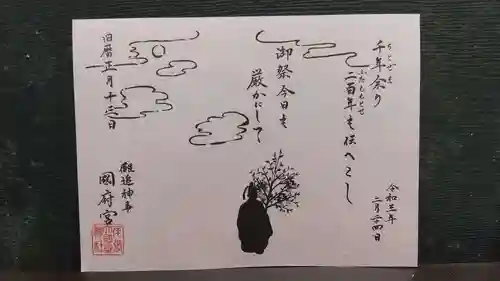 千年余り
ちとせあま
二百年を供へこし
ふたももとせ
御祭今日も
厳かにして
令和三年
二月二十四日
旧暦正月十三日
儺追神事
國府宮